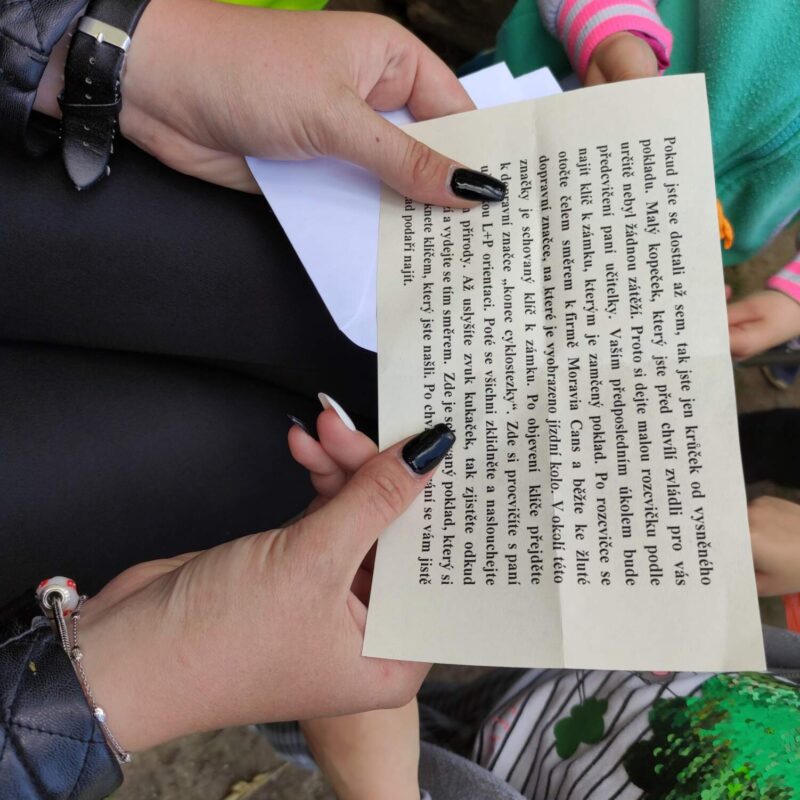 Pokud jste se dostali až sem, tak jste jen krůček od vysněného
pokladu. Malý kopeček, který jste před chvílí zvládli pro vás
určitě nebyl žádnou zátěží. Proto si dejte malou rozcvičku podle
předcvičení paní učitelky. Vaším předposledním úkolem bude
najít klíč k zámku, kterým je zamčený poklad. Po rozcvičce se
otočte čelem směrem k firmě Moravia Cans a běžte ke žluté
dopravní značce, na které je vyobrazeno jízdní kolo. V okolí této
značky je schovaný klíč k zámku. Po objevení klíče přejděte
k dopravní značce „konec cyklostezky“. Zde si procvičíte s paní
L+P orientaci. Poté se všichni zklidněte a naslouchejte
přírody. Až uslyšíte zvuk kukaček, tak zjistěte odkud
a vydejte se tím směrem. Zde je schovaný poklad, který si
klíčem, který jste našli. Po se vám jistě
podaří najít.